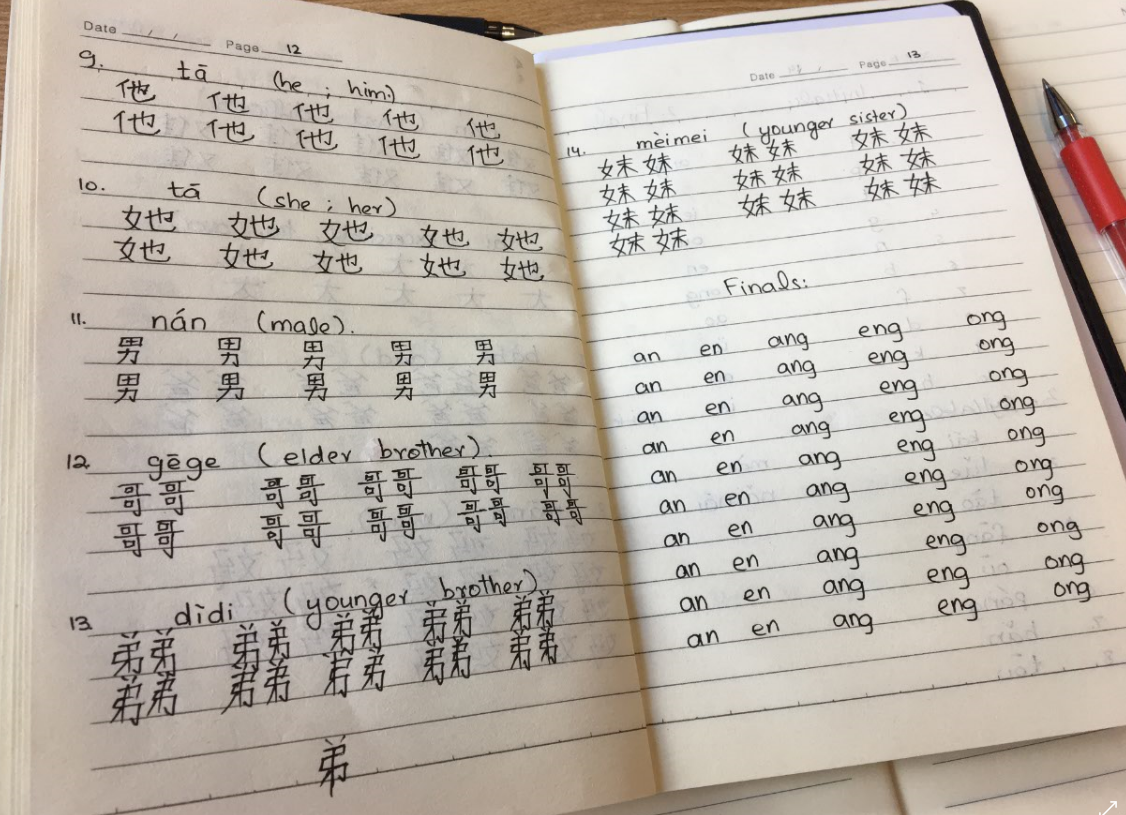 Date / / Page 12
9. tā (he ; him)
他 他 他 他 他
他 他 他 他 他
10. tā (she ; her)
她 她 她 她 她
她 她 她 她 她
11. nán (male).
男 男 男 男 男
男 男 男 男 男
12. gēge (elder brother).
哥哥 哥哥 哥哥 哥哥 哥哥
哥哥 哥哥 哥哥 哥哥 哥哥
13. dìdi (younger brother)
弟弟 弟弟 弟弟 弟弟 弟弟
弟弟 弟弟 弟弟 弟弟 弟弟
弟
Date / / Page 13
14. mèimei (younger sister)
妹妹 妹妹 妹妹
妹妹 妹妹 妹妹
妹妹 妹妹 妹妹
妹妹
Finals:
an en ang eng ong
an en ang eng ong
an en ang eng ong
an en ang eng ong
an en ang eng ong
an en ang eng ong
an en ang eng ong
an en ang eng ong
an en ang eng ong
an en ang eng ong